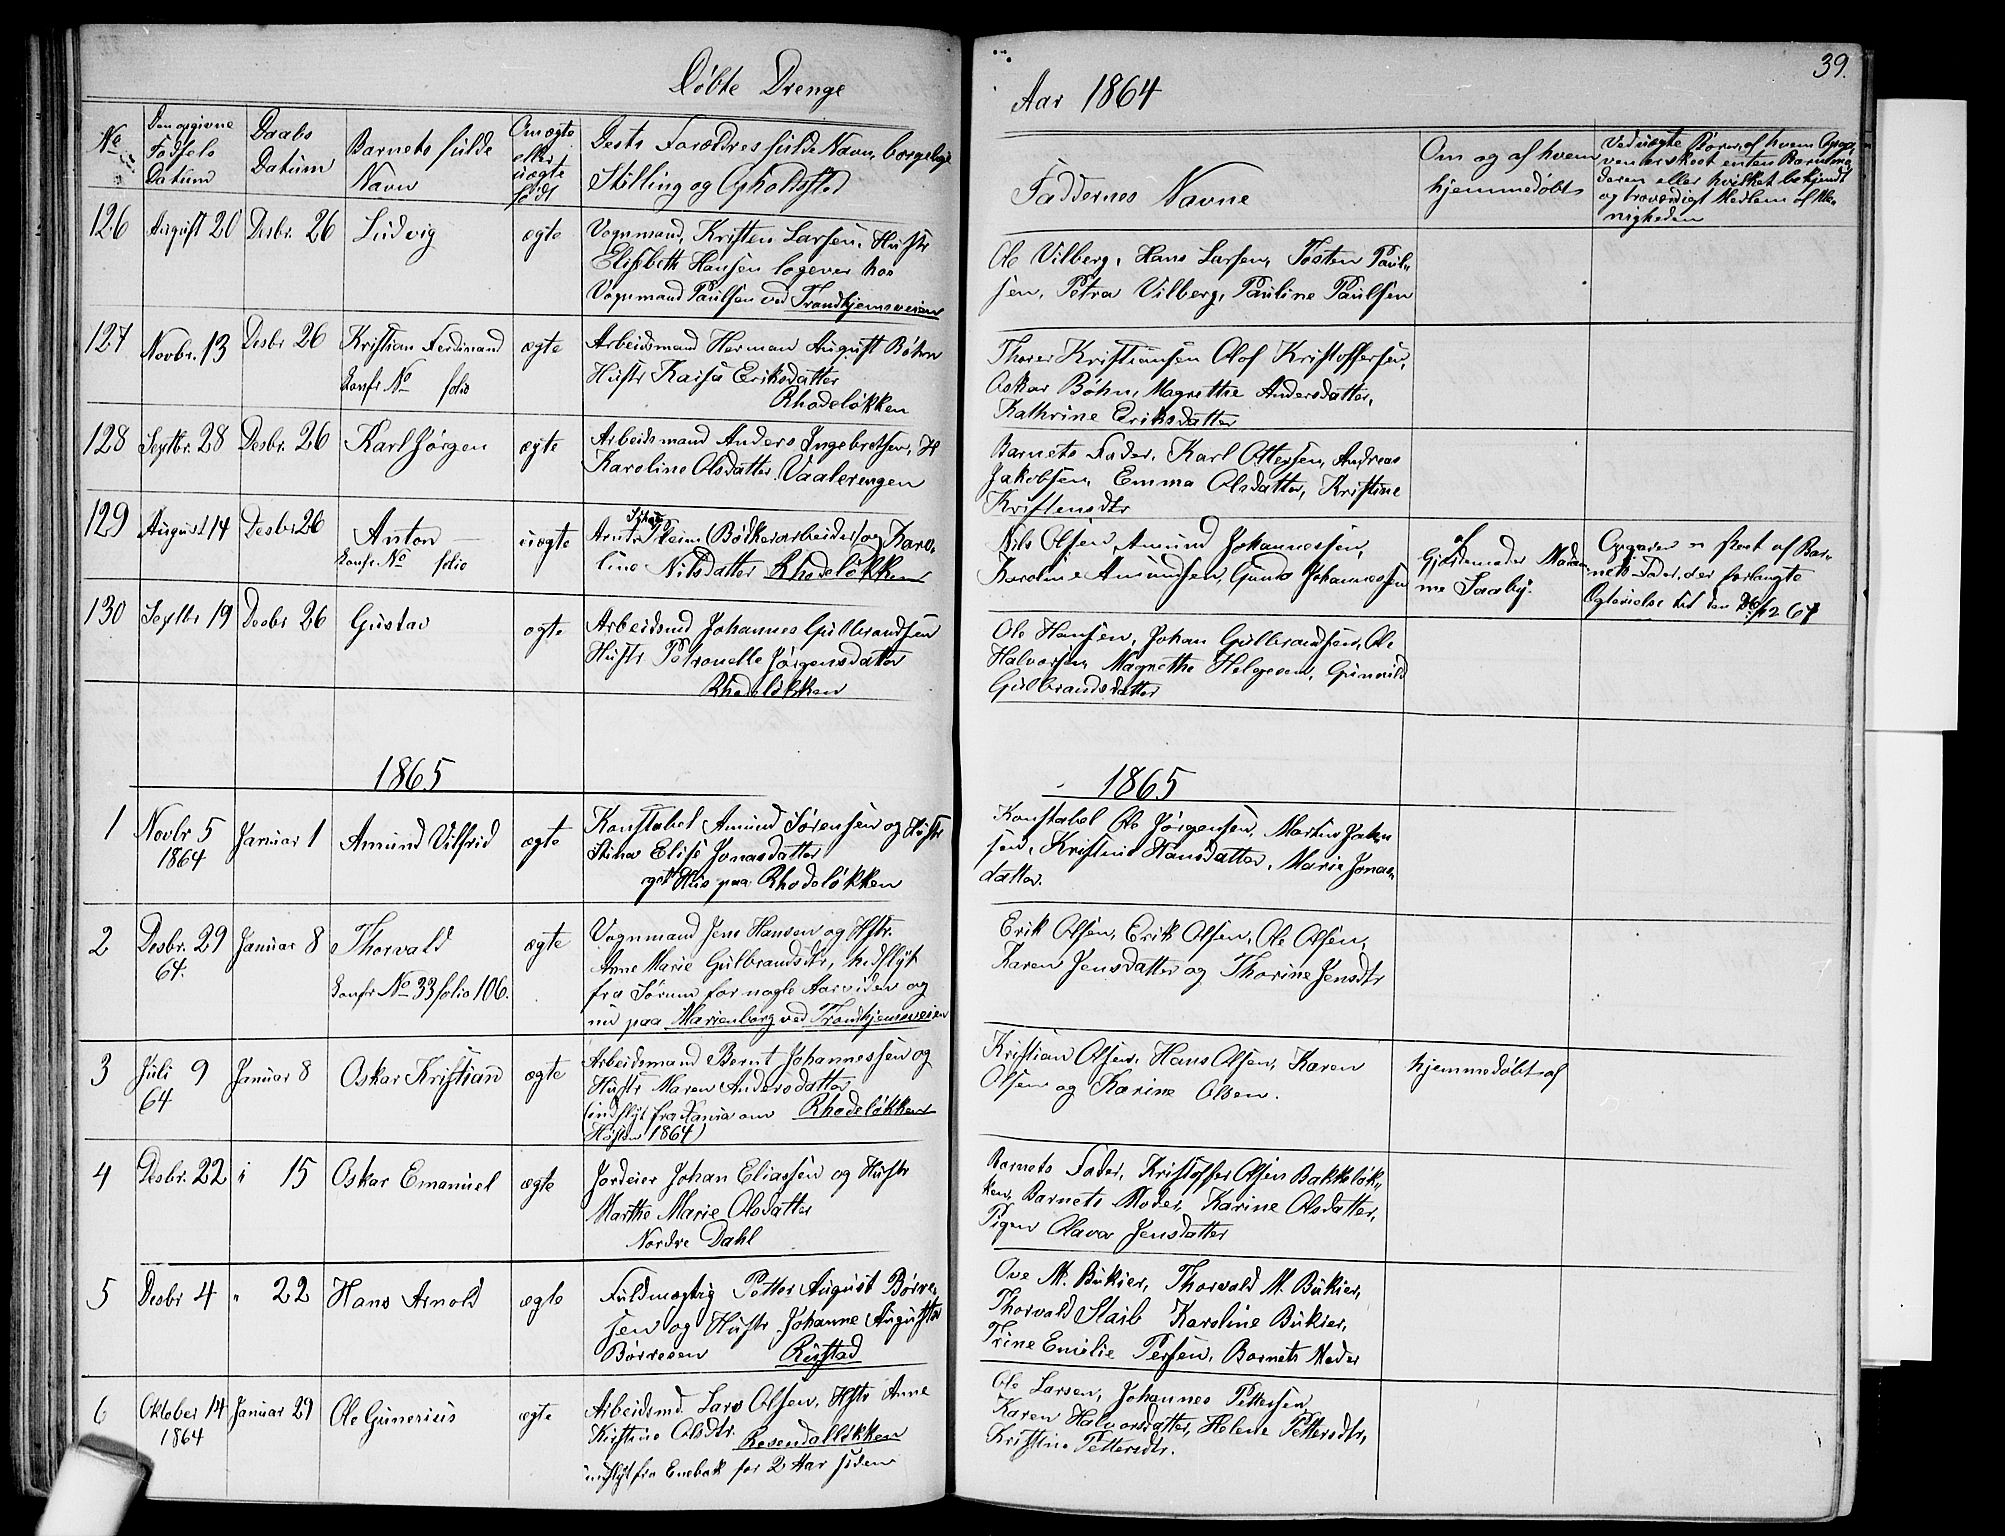 Døbte Drenge
No
Den opgivne
Fødsels
Datum
Daabs
Datum
Barnets fulde
Navn
Om ægte
eller
uægte
født
Dets Forældres fulde Navn, borgelige
Stilling og Opholdssted
126 August 20 Desbr. 26 Ludvig ægte Vognmand, Kristen Larsen. Hustr
Elisebeth Hansen logever hos
Vognmand Paulsen ved Trondhjemsveien
127 Novbr. 13 Desbr 26 Kristian Ferdinand ægte Arbeidsmand Herman August Bøhn
Konfr. No folio Hustr Kaisa Eriksdatter
Rhodeløkken
128 Septbr. 28 Desbr. 26 Karl Jørgen ægte Arbeidsmand Anders Ingebretsen, H
Karoline Olsdatter. Vaalerengen
129 August 14 Desbr 26 Anton uægte (Bødkerarbeider) og Karo-
Konfr. No folio line Nilsdatter Rhodeløkken
130 Septbr 19 Desbr 26 Gustav ægte Arbeidsmd Johannes Gulbrandsen
Hustr Petronelle Jørgensdatter
Rhodeløkken
1865
1 Novbr 5 Januar 1 Amund Vilfrid ægte Konstabel Amund Sørensen og Hustr
1864 Stina Elise Jonasdatter
eget Hus paa Rhodeløkken
2 Desbr. 29 Januar 8 Thorvald ægte Vognmand Jens Hansen og Hstr.
64. Anne Marie Gulbrandsdtr, indflyt
Konfr No 33 folio 106. fra Sørum for nogle Aar siden og
nu paa Marienborg ved Trondhjemsveien
3 Juli 9 Januar 8 Oskar Kristian ægte Arbeidsmand Bernt Johannessen og
64 Hustr Maren Andersdatter
(indflyt fra Xania om Rhodeløkken
Høsten 1864)
4 Desbr. 22 " 15 Oskar Emanuel ægte Jordeier Johan Eliassen og Hustr
Marthe Marie Olsdatter
Nordre Dahl
5 Desbr 4 " 22 Hans Arnold ægte Fuldmægtig Petter August Børre-
sen og Hustr Johanne Augusta
Børresen Rustad
6 Oktober 14 Januar 29 Ole Gunerius ægte Arbeidsmd. Lars Olsen, Hstr Anne
1864 Kirstine Olsdtr. Rosendalløkken
indflyt fra Enebak for 2 Aar siden
39.
Aar 1864
Faddernes Navne
Om og af hvem
hjemmedøbt
Ved uægte Børn, af hvem Opgi-
ven er skeet enten Barnemo
deren eller hvilket bekjendt
og troværdigt Medlem af Me-
nigheden
Ole Vilberg, Hans Larsen, Tosten Paul-
sen, Petra Vilberg, Pauline Paulsen
Thorer Kristiansen Olof Kristoffersen,
Oskar Bøhn, Magrethe Andersdatter,
Kathrine Eriksdatter
Barnets Fader, Karl Ottersen, Andreas
Jakobsen, Emma Olsdatter, Kristine
Kristensdtr
Nils Olsen Amund Johannessen,
Karoline Amundsen, Gunda Johannessen
af
Gjordemoder Mada-
me Saaby.
Opgaven er skeet af Bar-
nets Fader, der forlangte
26/12 64
Ole Hansen, Johan Gulbrandsen, Ole
Halvorsen, Magrethe Helgesen, Gunnild
Gulbrandsdatter
1865
Konstabel Ole Jørgensen, Martin Johan-
sen, Kristine Hansdatter, Marie Jonas-
datter.
Erik Olsen, Erik Olsen, Ole Olsen,
Karen Jensdatter og Thorine Jensdtr
Kristian Olsen, Hans Olsen, Karen
Olsen og Karine Olsen.
hjemmedøbt af
Barnets Fader, Kristoffer Olsen Bakkeløk-
ken, Barnets Moder, Karine Olsdatter,
Pigen Olava Jensdatter
Ove M. Bükier, Thorvald M. Bükier,
Thorvald Staib Karoline Bükier,
Trine Emilie Persen, Barnets Moder
Ole Larsen, Johannes Pettersen,
Karen Halvorsdatter, Helene Pettersdtr,
Kristine Pettersdtr.